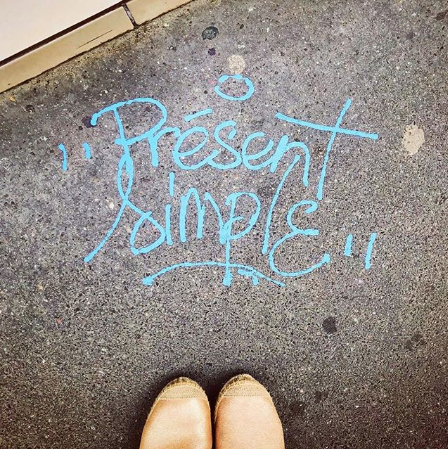 "Présent
simple"